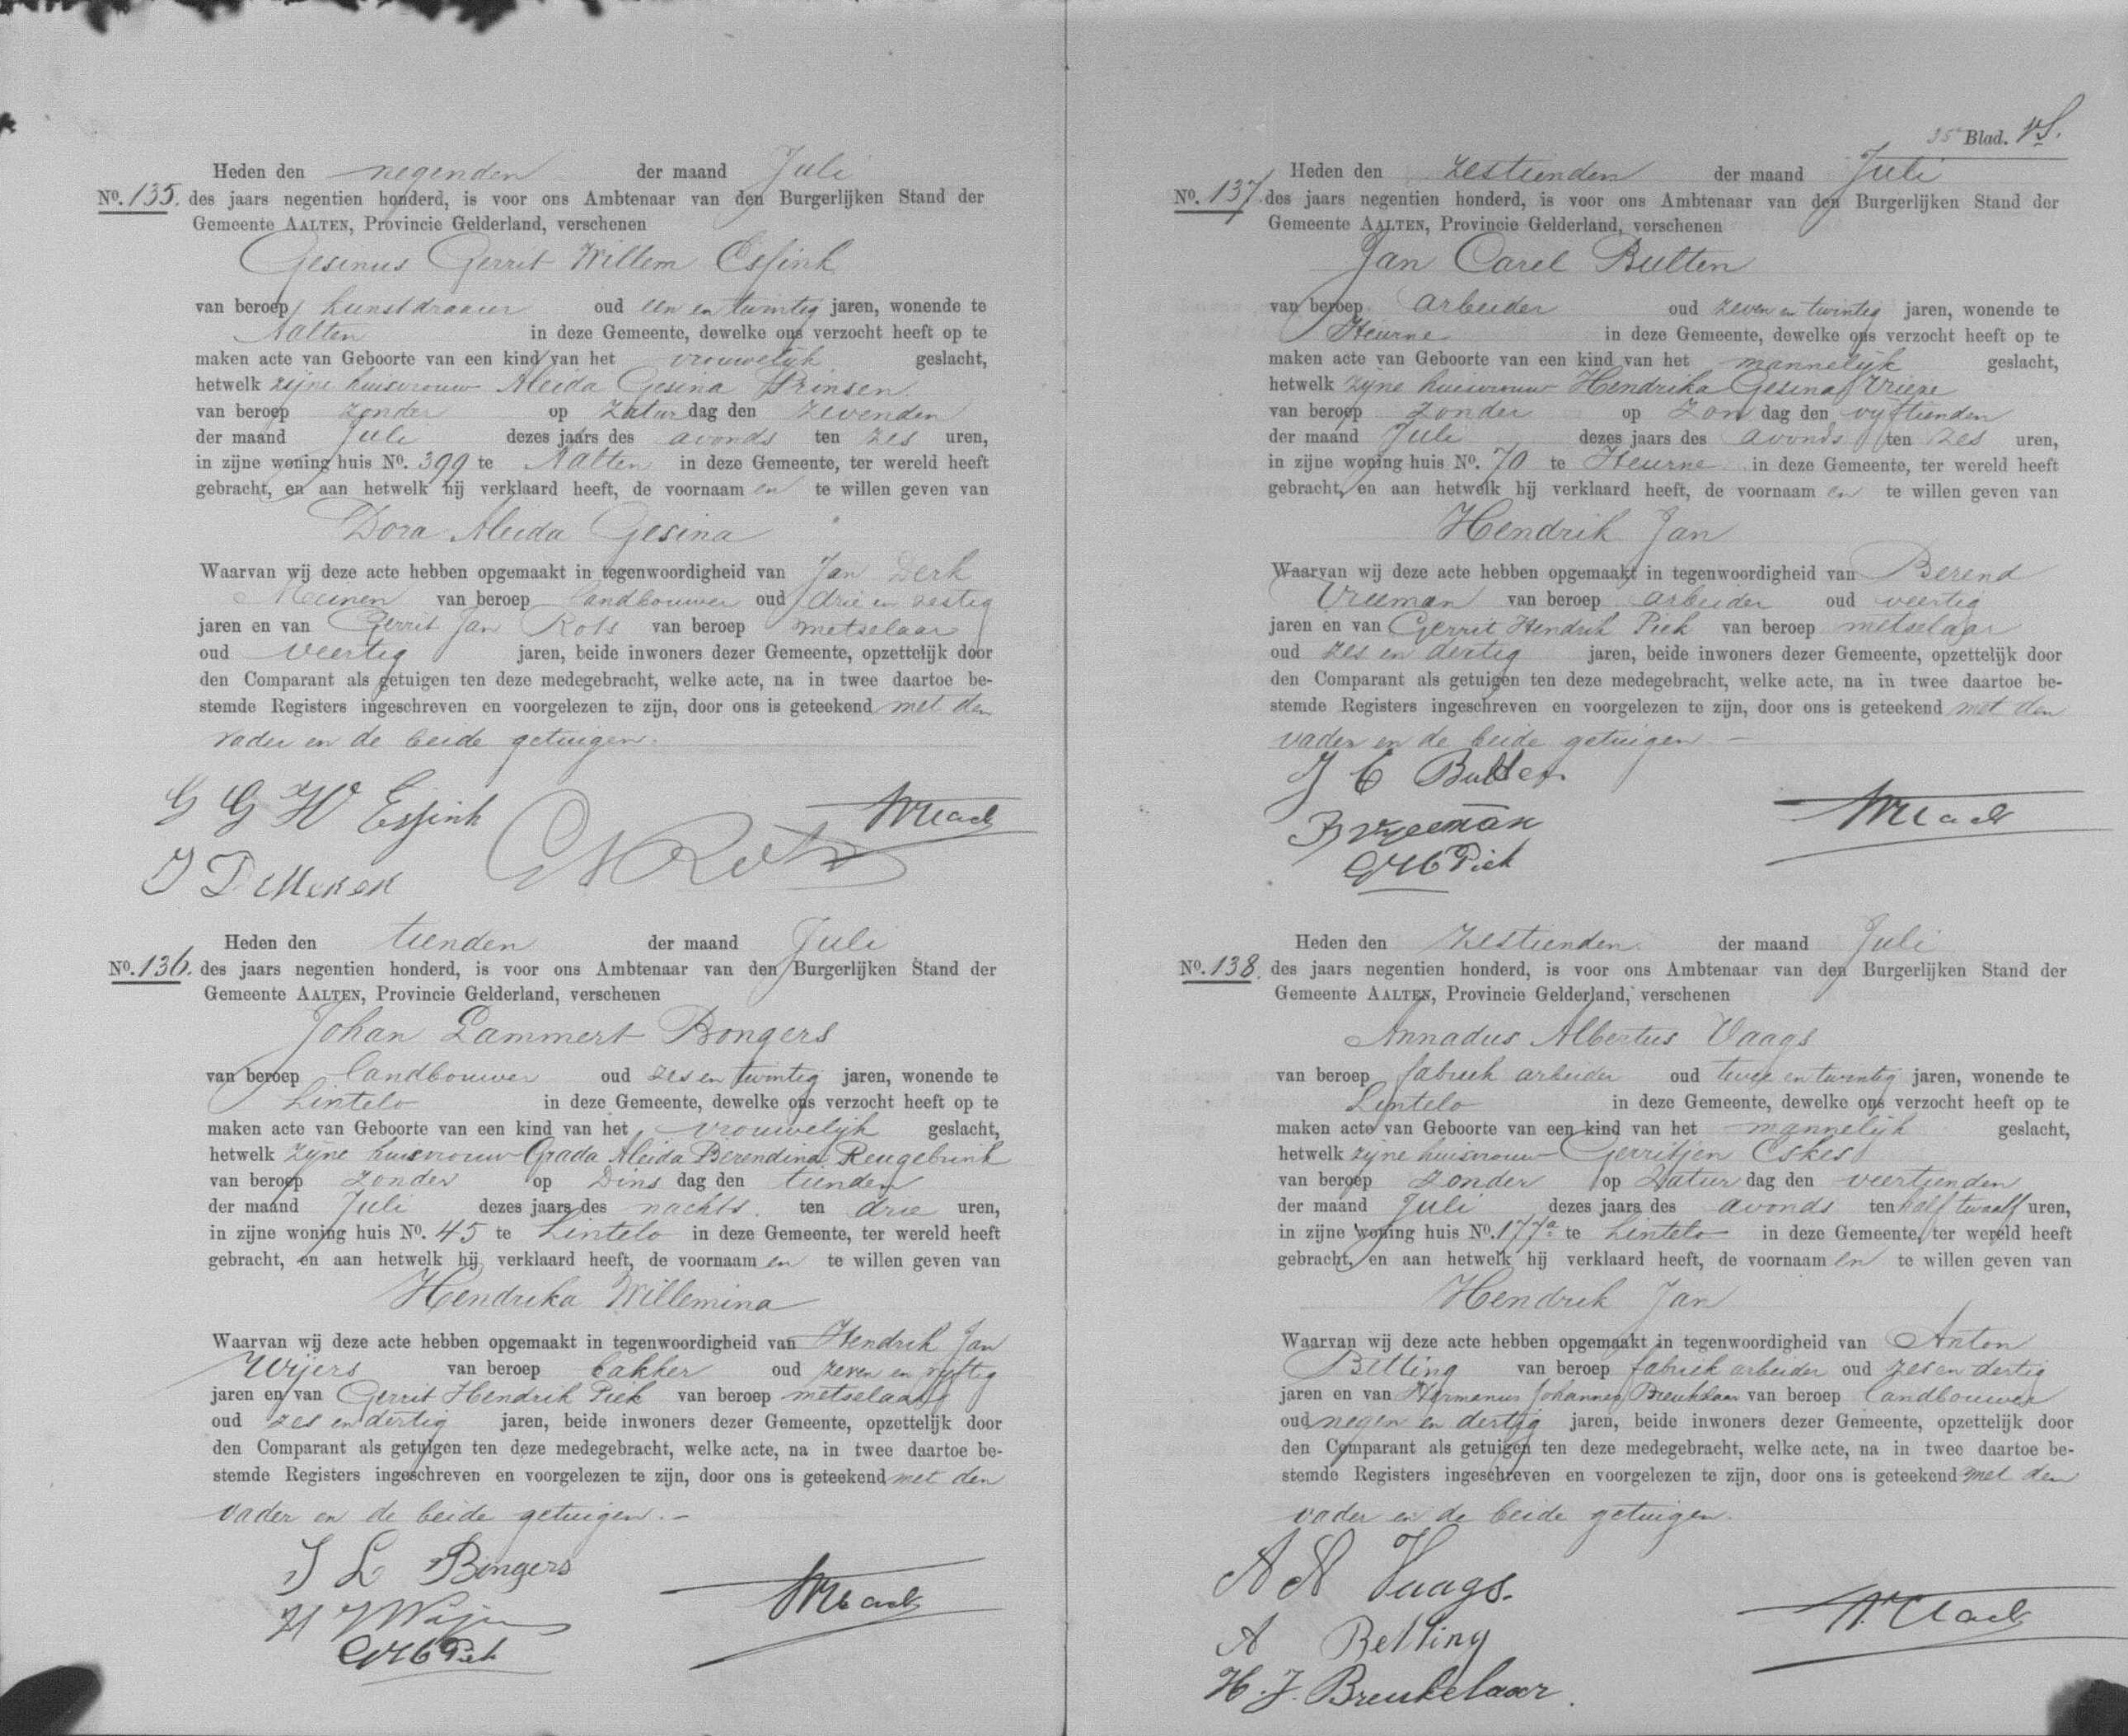 Heden den negenden der maand Juli
No. 135. des jaars negentien honderd, is voor ons Ambtenaar van den Burgerlijken Stand der
Gemeente AALTEN, Provincie Gelderland, verschenen
Gesinus Gerrit Willem Essink
van beroep kunstdraaier oud een en twintig jaren, wonende te
Aalten in deze Gemeente, dewelke ons verzocht heeft op te
maken acte van Geboorte van een kind van het vrouwelijk geslacht,
hetwelk zijne huisvrouw Aleida Gesina Prinsen
van beroep zonder op Zatur dag den zevenden
der maand Juli dezes jaars des avonds ten zes uren,
in zijne woning huis No. 399 te Aalten in deze Gemeente, ter wereld heeft
gebracht, en aan hetwelk hij verklaard heeft, de voornaam en te willen geven van
Dora Aleida Gesina
Waarvan wij deze acte hebben opgemaakt in tegenwoordigheid van Jan Derk
Meinen van beroep landbouwer oud drie en zestig
jaren en van Gerrit Jan Rots van beroep metselaar
oud veertig jaren, beide inwoners dezer Gemeente, opzettelijk door
den Comparant als getuigen ten deze medegebracht, welke acte, na in twee daartoe be-
stemde Registers ingeschreven en voorgelezen te zijn, door ons is geteekend met den
vader en de beide getuigen.
G G W Essink
J D Meinen
Heden den tienden der maand Juli
No. 136. des jaars negentien honderd, is voor ons Ambtenaar van den Burgerlijken Stand der
Gemeente AALTEN, Provincie Gelderland, verschenen
Johan Lammert Bongers
van beroep landbouwer oud zes en twintig jaren, wonende te
Lintelo in deze Gemeente, dewelke ons verzocht heeft op te
maken acte van Geboorte van een kind van het vrouwelijk geslacht,
hetwelk zijne huisvrouw Grada Aleida Berendina Reugebrink
van beroep zonder op Dins dag den tienden
der maand Juli dezes jaars des nachts ten drie uren,
in zijne woning huis No. 45 te Lintelo in deze Gemeente, ter wereld heeft
gebracht, en aan hetwelk hij verklaard heeft, de voornaam en te willen geven van
Hendrika Willemina
Waarvan wij deze acte hebben opgemaakt in tegenwoordigheid van Hendrik Jan
Wijers van beroep bakker oud zeven en vijftig
jaren en van Gerrit Hendrik Piek van beroep metselaar
oud zes en dertig jaren, beide inwoners dezer Gemeente, opzettelijk door
den Comparant als getuigen ten deze medegebracht, welke acte, na in twee daartoe be-
stemde Registers ingeschreven en voorgelezen te zijn, door ons is geteekend met den
vader en de beide getuigen.-
J L Bongers
H J Wijers
G H Piek
35e Blad.
Heden den zestienden der maand Juli
No. 137 des jaars negentien honderd, is voor ons Ambtenaar van den Burgerlijken Stand der
Gemeente AALTEN, Provincie Gelderland, verschenen
Jan Carel Bulten
van beroep arbeider oud zeven en twintig jaren, wonende te
Heurne in deze Gemeente, dewelke ons verzocht heeft op te
maken acte van Geboorte van een kind van het mannelijk geslacht,
hetwelk zijne huisvrouw Hendrika Gesina Vrieze
van beroep zonder op Zon dag den vijftienden
der maand Juli dezes jaars des avonds ten zes uren,
in zijne woning huis No. 70 te Heurne in deze Gemeente, ter wereld heeft
gebracht, en aan hetwelk hij verklaard heeft, de voornaam en te willen geven van
Hendrik Jan
Waarvan wij deze acte hebben opgemaakt in tegenwoordigheid van Berend
Vreeman van beroep arbeider oud veertig
jaren en van Gerrit Hendrik Piek van beroep metselaar
oud zes en dertig jaren, beide inwoners dezer Gemeente, opzettelijk door
den Comparant als getuigen ten deze medegebracht, welke acte, na in twee daartoe be-
stemde Registers ingeschreven en voorgelezen te zijn, door ons is geteekend met den
vader en de beide getuigen -
J C Bulten
B Vreeman
G H Piek
Heden den zestienden der maand Juli
No. 138. des jaars negentien honderd, is voor ons Ambtenaar van den Burgerlijken Stand der
Gemeente AALTEN, Provincie Gelderland, verschenen
Annadus Albertus Vaags
van beroep fabriek arbeider oud twee en twintig jaren, wonende te
Lintelo in deze Gemeente, dewelke ons verzocht heeft op te
maken acte van Geboorte van een kind van het mannelijk geslacht,
hetwelk zijne huisvrouw Gerritjen Eskes
van beroep zonder op Zatur dag den veertienden
der maand Juli dezes jaars des avonds ten half twaalf uren,
in zijne woning huis No. 177a te Lintelo in deze Gemeente, ter wereld heeft
gebracht, en aan hetwelk hij verklaard heeft, de voornaam en te willen geven van
Hendrik Jan
Waarvan wij deze acte hebben opgemaakt in tegenwoordigheid van Anton
Betting van beroep fabriek arbeider oud zes en dertig
jaren en van Hermanus Johannes Breukelaar van beroep landbouwer
oud negen en dertig jaren, beide inwoners dezer Gemeente, opzettelijk door
den Comparant als getuigen ten deze medegebracht, welke acte, na in twee daartoe be-
stemde Registers ingeschreven en voorgelezen te zijn, door ons is geteekend met den
vader en de beide getuigen.
A A Vaags.
A Betting
H. J. Breukelaar.